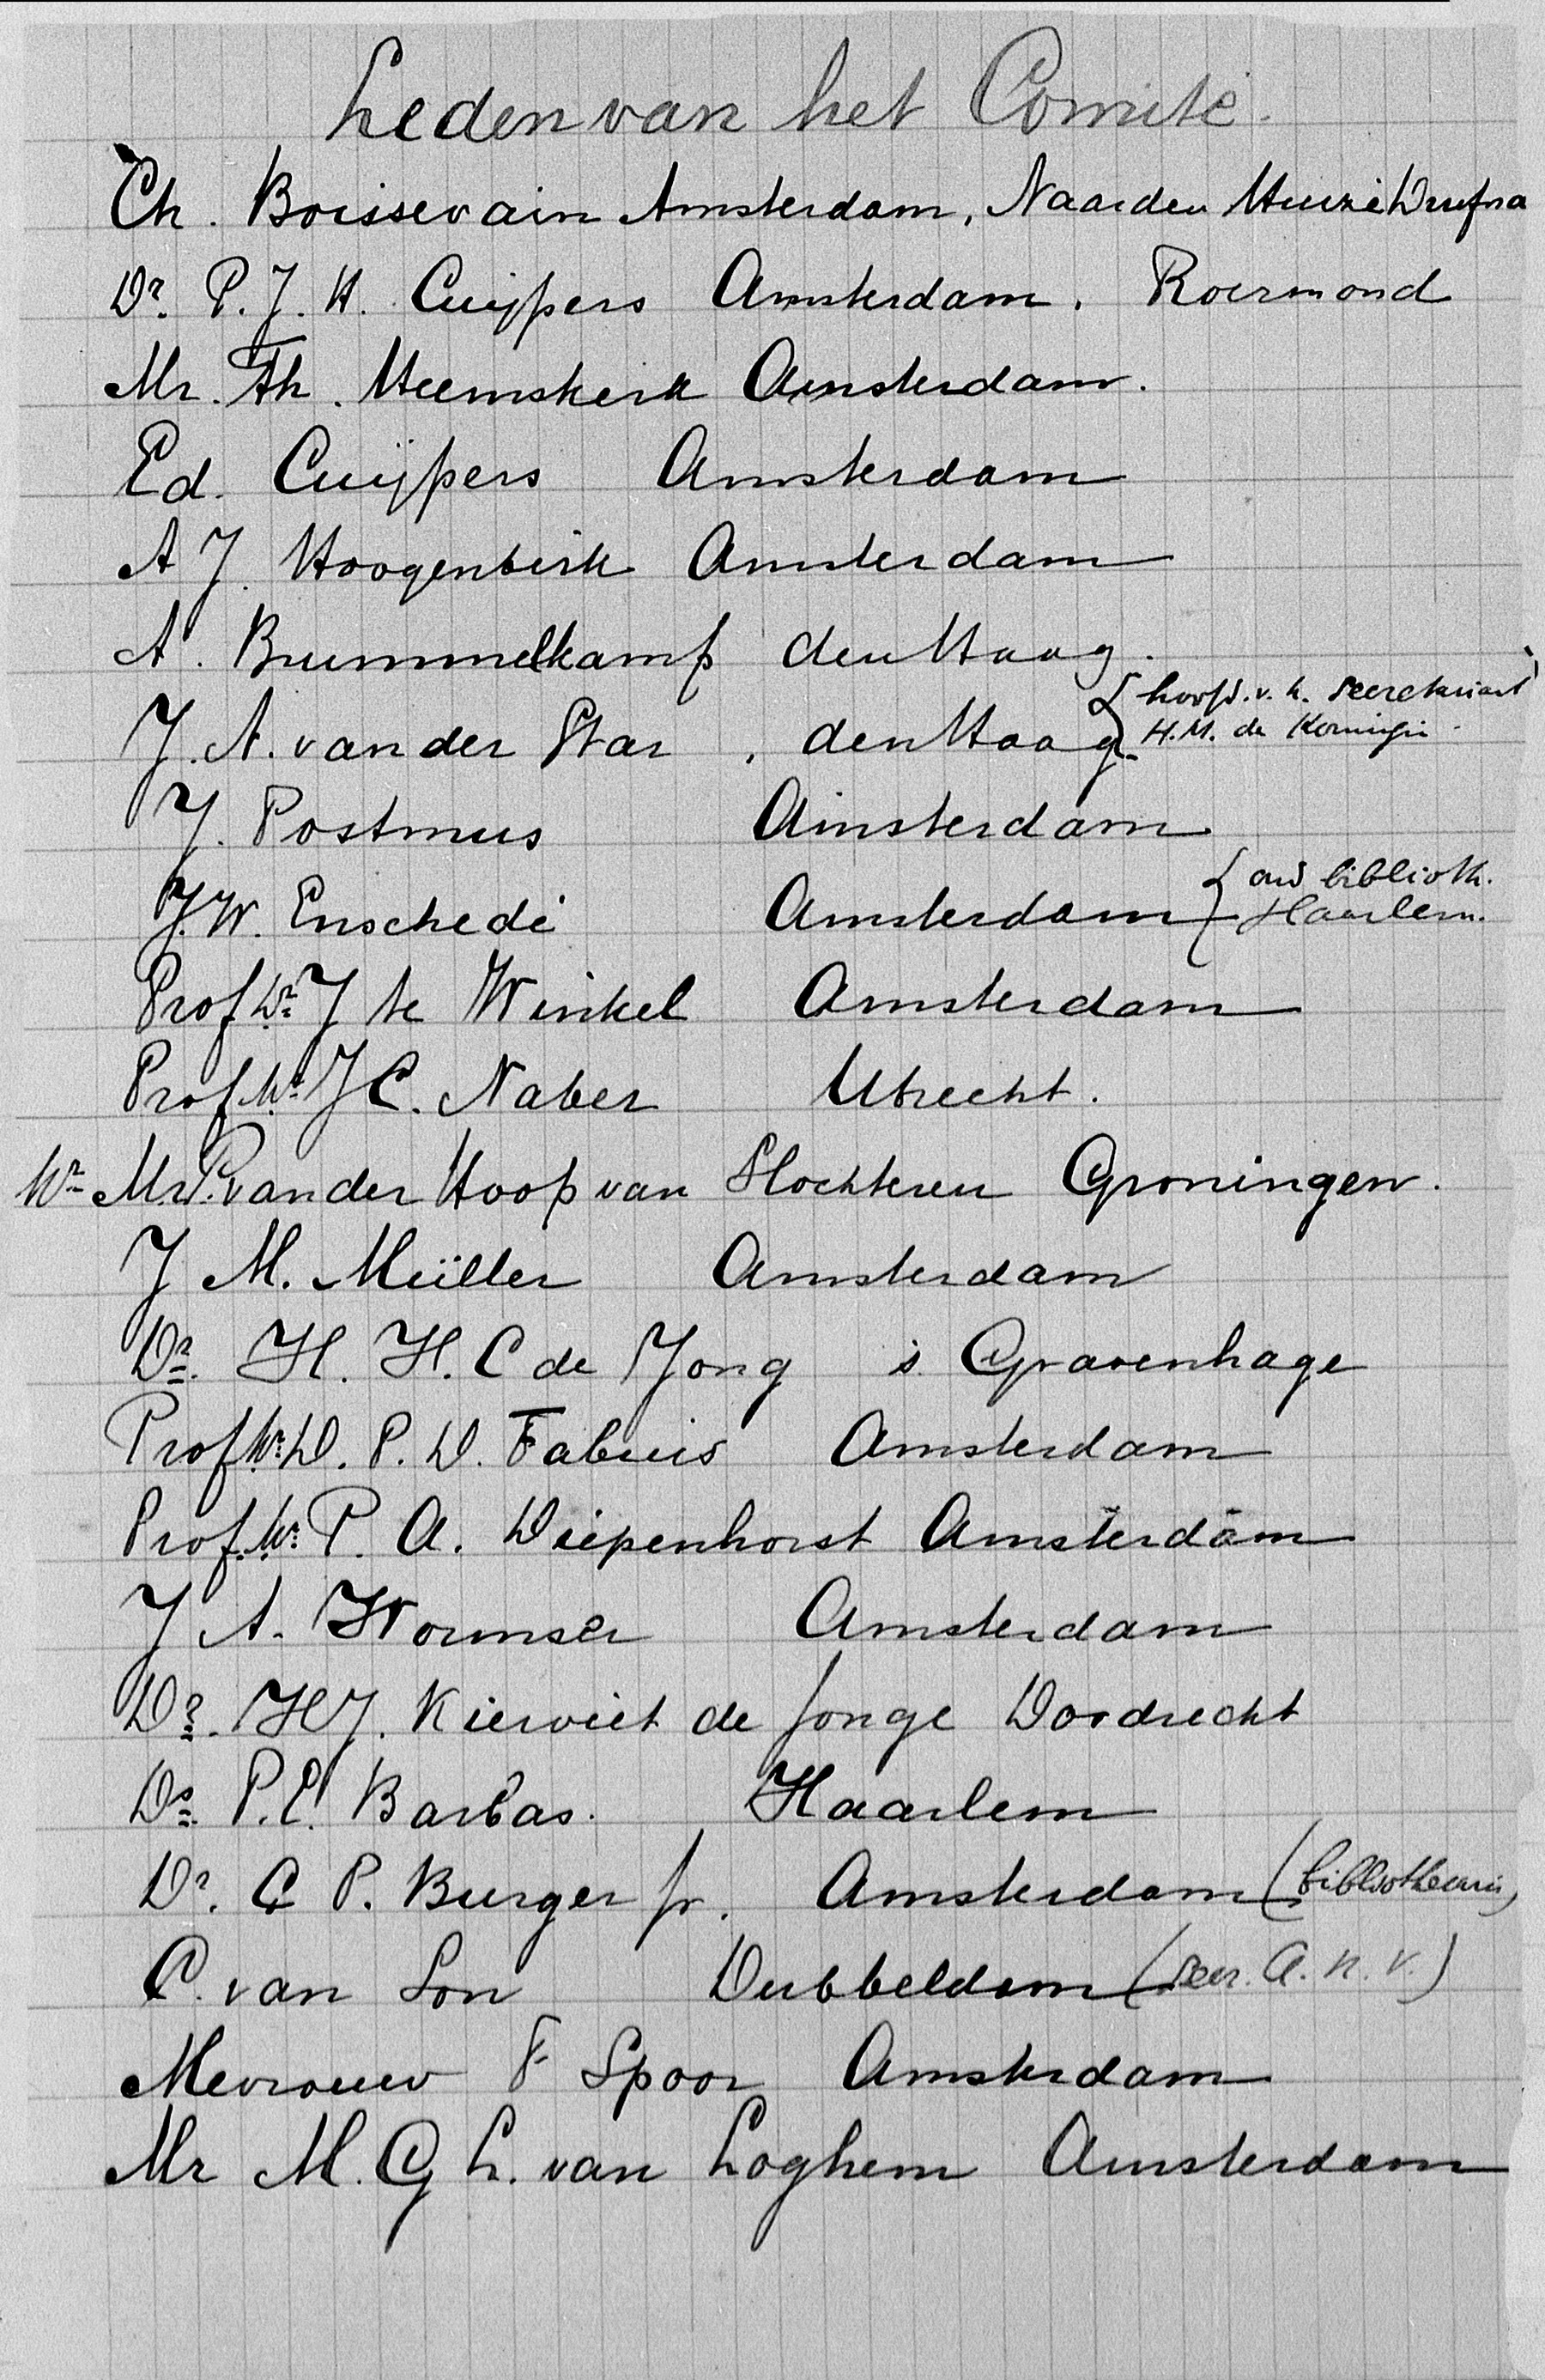 Leden van het Comité.
Ch. Boissevain Amsterdam, Naarden Huize Drafna
Dr. P. J. H. Cuijpers Amsterdam. Roermond
Mr. Th. Heemskerk Amsterdam.
Ed. Cuijpers Amsterdam
A J. Hoogenbirk Amsterdam
A. Brummelkamp den Haag.
J. A. van der Star, den Haag { hoofd. v. h. secretariaat
H.M. de Koningin
J. Postmus Amsterdam
J. W. Enschedé Amsterdam { oud biblioth.
Haarlem.
Prof Dr. J te Winkel Amsterdam
Prof. Mr. J C. Naber Utrecht.
Mr. P. van der Hoop van Slochteren Groningen.
J M. Müller Amsterdam
Dr. H. H. C de Jong 's Gravenhage
Prof Mr. D. P. D. Fabius Amsterdam
Prof. Mr. P. A. Diepenhorst Amsterdam
J A. Wormser Amsterdam
Dr. H J. Kiewiet de Jonge Dordrecht
Ds. P. E. Barbas. Haarlem
Dr. C P. Burger Jr. Amsterdam (bibliothecaris)
C. van Son Dubbeldam (secr. A. N. V.)
Mevrouw F Spoor Amsterdam
Mr M. G L. van Loghem Amsterdam